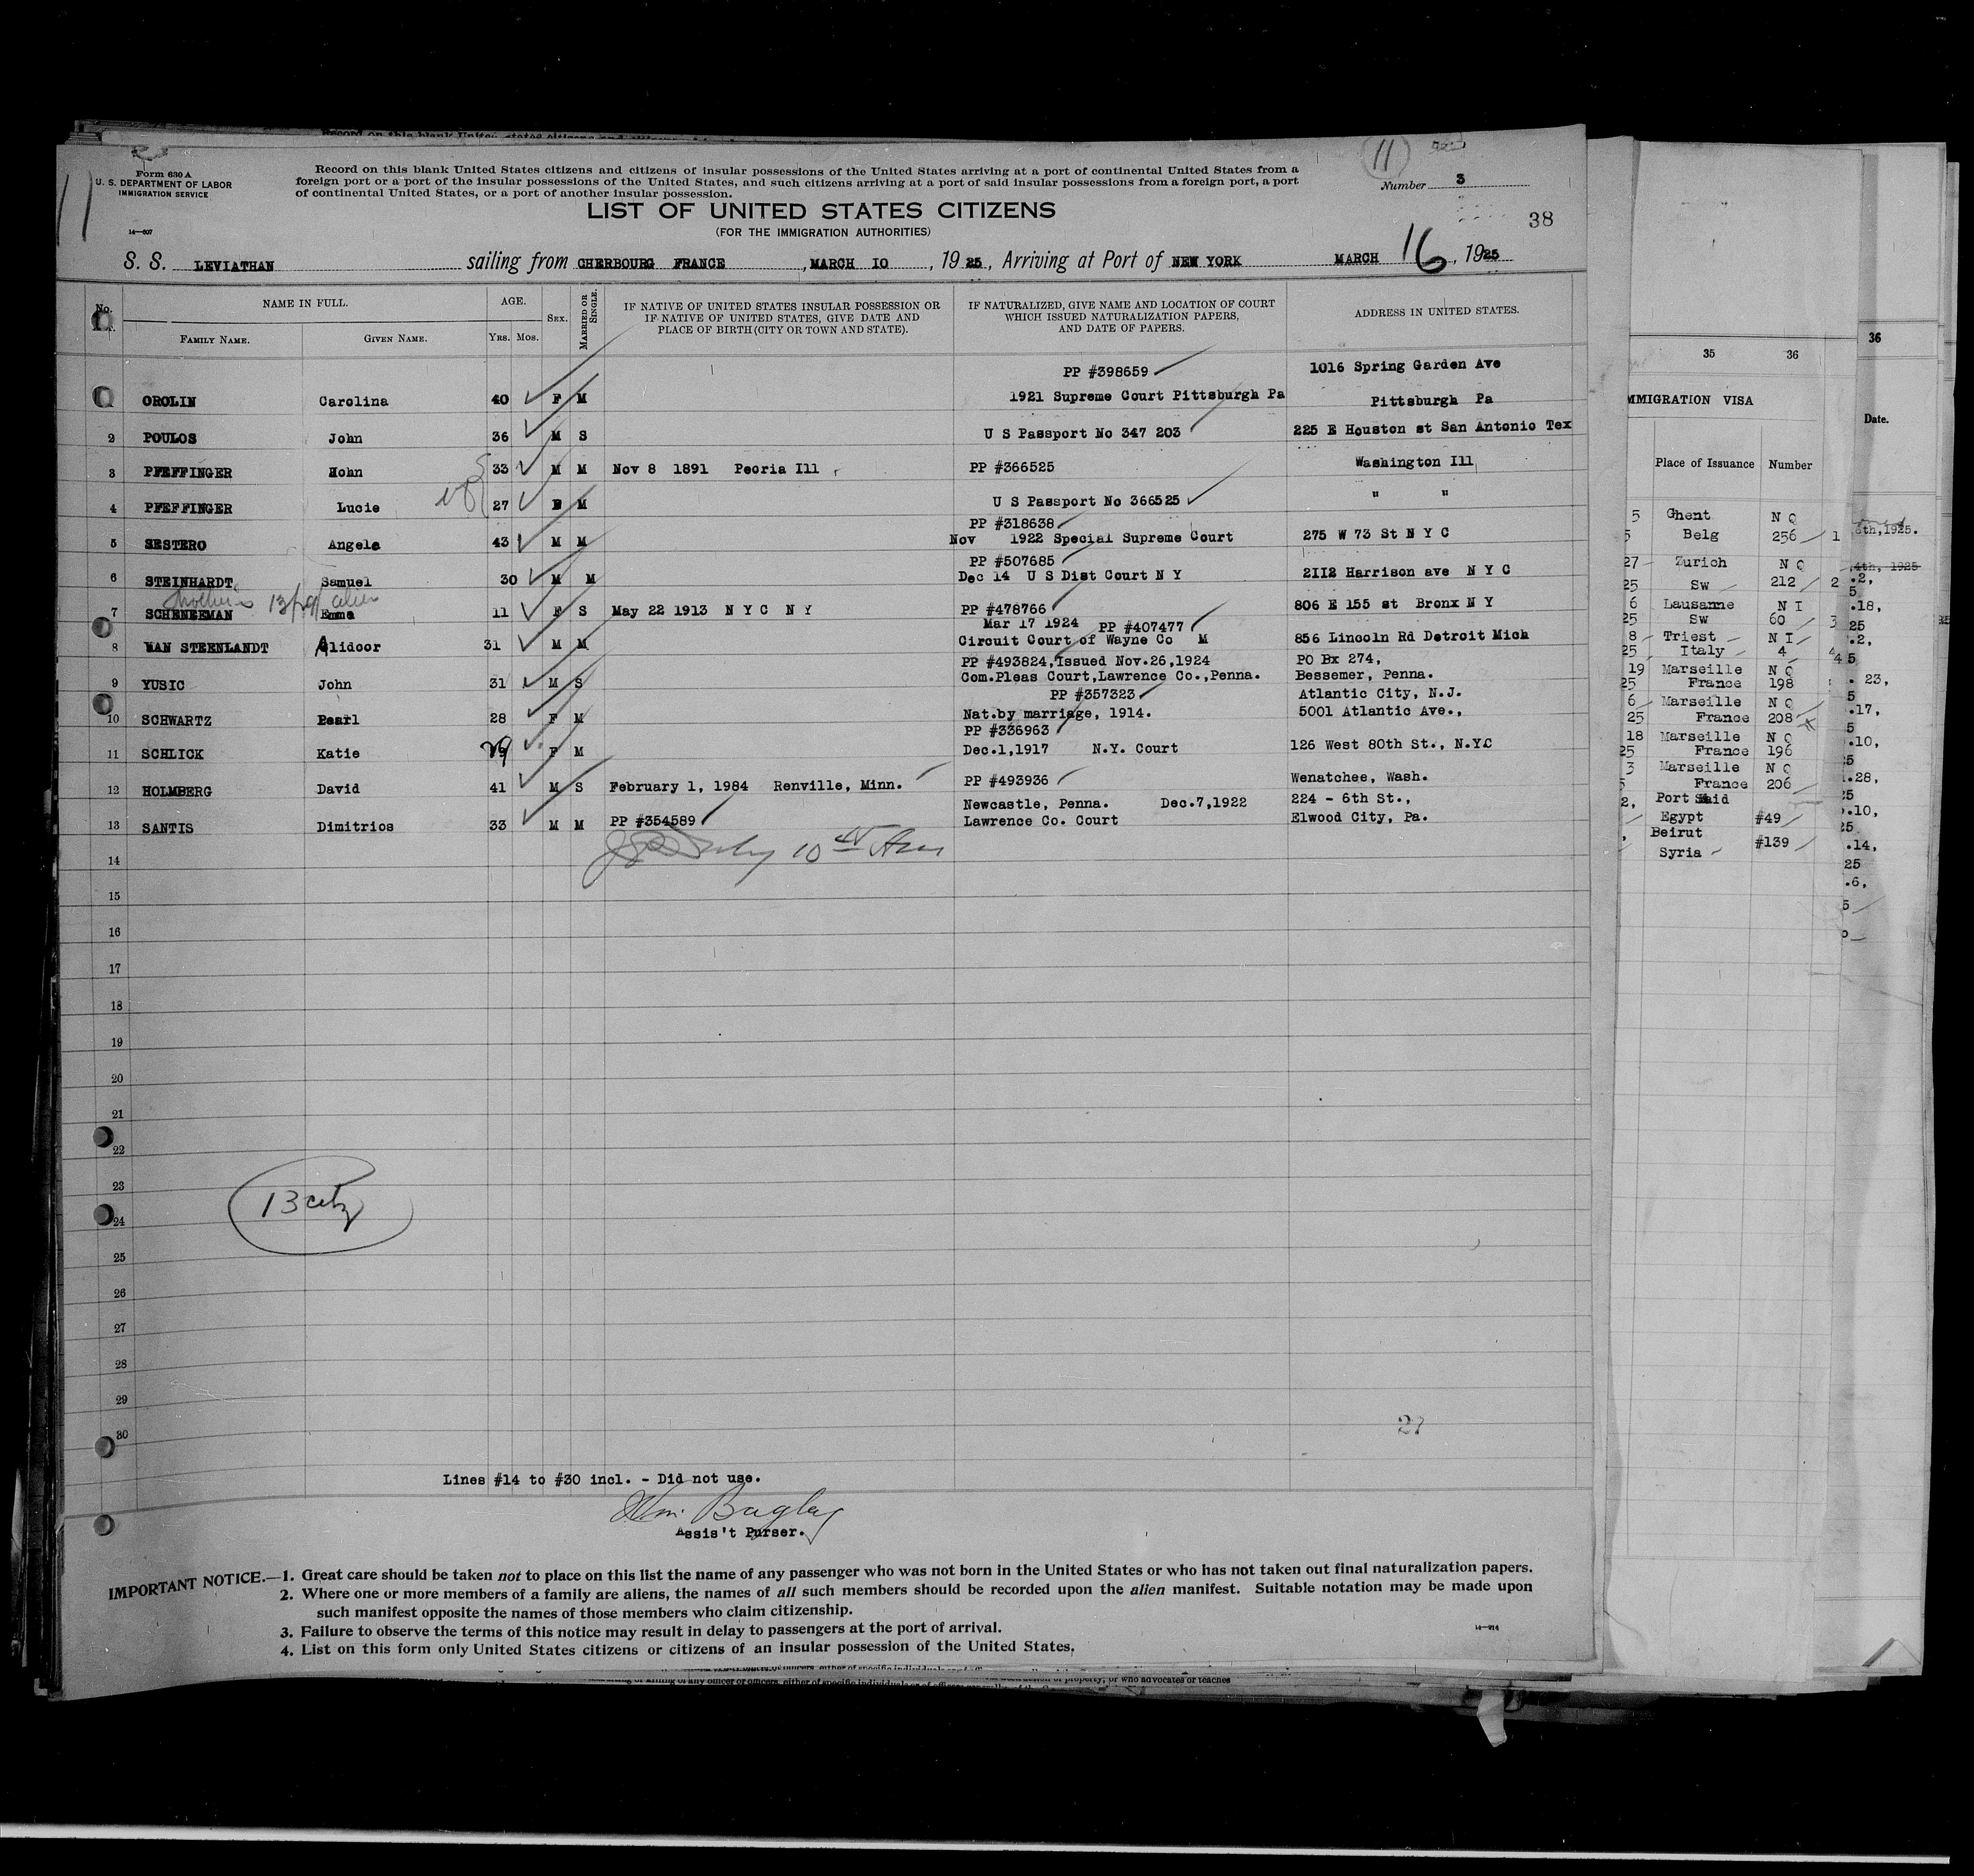 Form 630 A
U. S. DEPARTMENT OF LABOR
IMMIGRATION SERVICE
14—607
Record on this blank United States citizens and citizens of insular possessions of the United States arriving at a port of continental United States from a
foreign port or a port of the insular possessions of the United States, and such citizens arriving at a port of said insular possessions from a foreign port, a port
of continental United States, or a port of another insular possession.
11
Number 3
LIST OF UNITED STATES CITIZENS
(FOR THE IMMIGRATION AUTHORITIES)
38
S. S. LEVIATHAN sailing from CHERBOURG FRANCE, MARCH IO, 19 25, Arriving at Port of NEW YORK MARCH 16, 1925
No. NAME IN FULL. AGE. SEX. MARRIED OR SINGLE. IF NATIVE OF UNITED STATES INSULAR POSSESSION OR IF NATIVE OF UNITED STATES, GIVE DATE AND PLACE OF BIRTH (CITY OR TOWN AND STATE). IF NATURALIZED, GIVE NAME AND LOCATION OF COURT WHICH ISSUED NATURALIZATION PAPERS, AND DATE OF PAPERS. ADDRESS IN UNITED STATES.
FAMILY NAME. GIVEN NAME. YRS. MOS.
PP #398659 1016 Spring Garden Ave
OROLIN Carolina 40 F M 1921 Supreme Court Pittsburgh Pa Pittsburgh Pa
2 POULOS John 36 M S U S Passport No 347 203 225 E Houston st San Antonio Tex
3 PFEFFINGER Hohn 33 M M Nov 8 1891 Peoria Ill PP #366525 Washington Ill
4 PFEFFINGER Lucie 27 F M U S Passport No 366525 " "
PP #318638
5 SESTERO Angelo 43 M M Nov 1922 Special Supreme Court 275 W 73 St N Y C
PP #507685
6 STEINHARDT Samuel 30 M M Dec 14 U S Dist Court N Y 2II2 Harrison ave N Y C
alien
7 SCHENEEMAN Emma 11 F S May 22 1913 N Y C N Y PP #478766 806 E 155 st Bronx N Y
Mar 17 1924 PP #407477
8 VAN STEENLANDT Alidoor 31 M M Circuit Court of Wayne Co M 856 Lincoln Rd Detroit Mich
PP #493824, Issued Nov.26,1924 PO Bx 274,
9 YUSIC John 31 M S Com.Pleas Court,Lawrence Co.,Penna. Bessemer, Penna.
PP #357323 Atlantic City, N.J.
10 SCHWARTZ Pearl 28 F M Nat.by marriage, 1914. 5001 Atlantic Ave.,
PP #336963
11 SCHLICK Katie 29 F M Dec.1,1917 N.Y. Court 126 West 80th St., N.YC
12 HOLMBERG David 41 M S February 1, 1984 Renville, Minn. PP #493936 Wenatchee, Wash.
Newcastle, Penna. Dec.7,1922 224 - 6th St.,
13 SANTIS Dimitrios 33 M M PP #354589 Lawrence Co. Court Elwood City, Pa.
14
15
16
17
18
19
20
21
22
23
24
25
26
27
28
29
30
27
Lines #14 to #30 incl. - Did not use.
Wm. Bagley
Assis't Purser.
IMPORTANT NOTICE.—1. Great care should be taken not to place on this list the name of any passenger who was not born in the United States or who has not taken out final naturalization papers.
2. Where one or more members of a family are aliens, the names of all such members should be recorded upon the alien manifest. Suitable notation may be made upon
such manifest opposite the names of those members who claim citizenship.
3. Failure to observe the terms of this notice may result in delay to passengers at the port of arrival.
4. List on this form only United States citizens or citizens of an insular possession of the United States.
14—914
35 36
MMIGRATION VISA
Place of Issuance Number
5 Ghent N Q
Belg 256
27 Zurich N Q
25 Sw 212
6 Lausanne N I
25 Sw 60
8 Triest N I
25 Italy 4
19 Marseille N Q
25 France 198
6 Marseille N Q
25 France 208
18 Marseille N Q
25 France 196
3 Marseille N Q
France 206
Port Said
Egypt #49
Beirut
Syria #139
36
Date.
6th,1925.
4th, 1925
.2,
.18,
25
.2,
23,
.17,
.10,
.28,
25
.10,
25
.14,
25
.6,